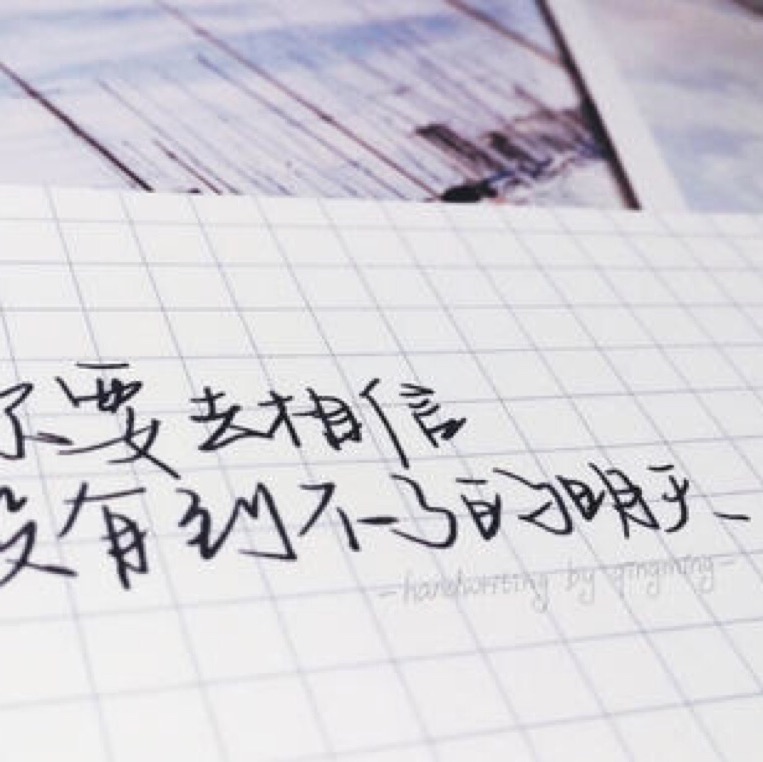 你要去相信
没有到不了的明天
-handwriting by qingming-